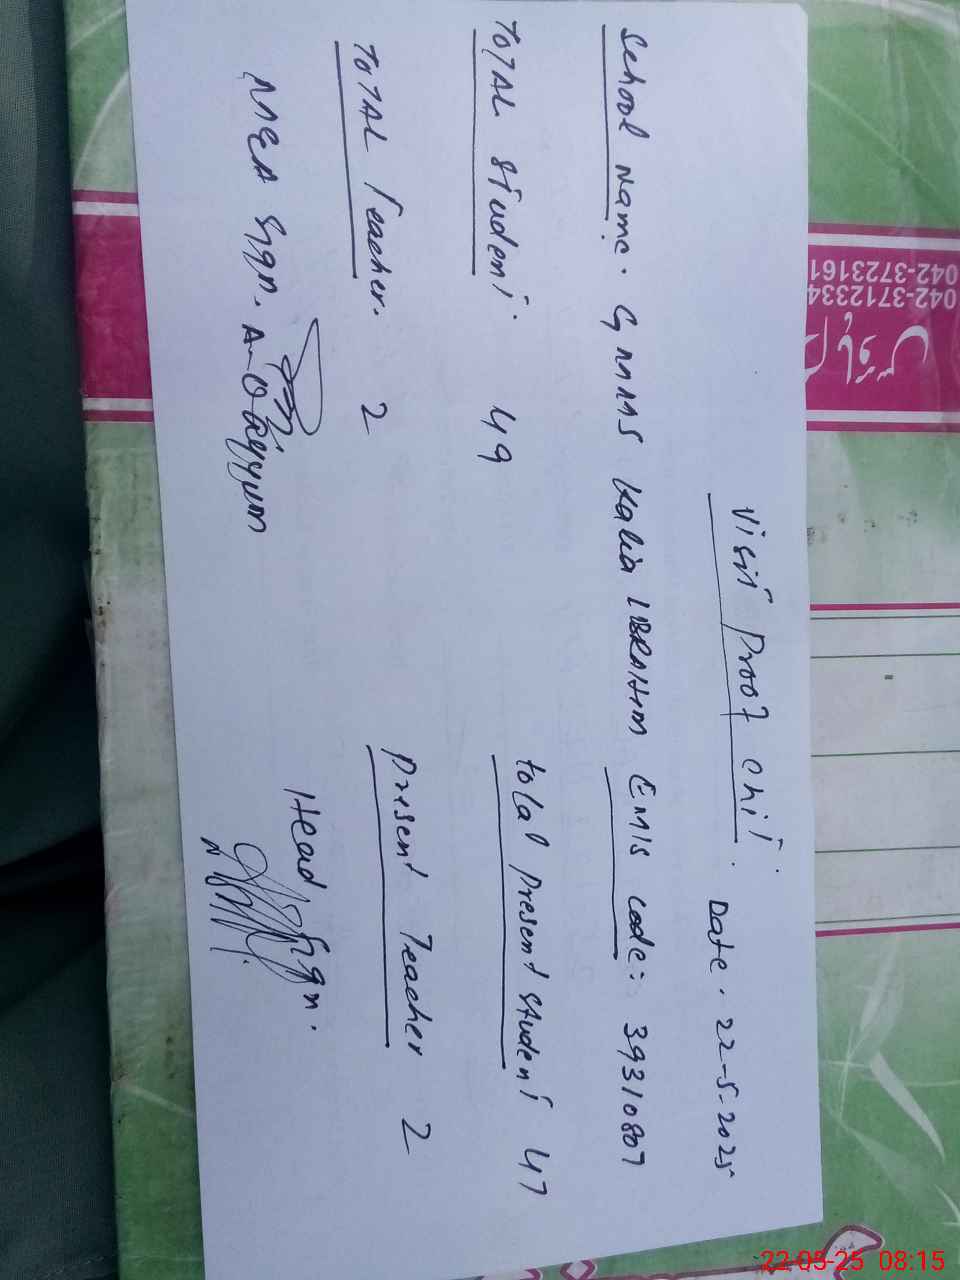 Visit Proof chit. Date. 22-5-2025
School Name. GMMS Kalia IBRAHIM EMIS code: 39310807
TOTAL student. 49 total present student 47
TOTAL Teacher. 2 present Teacher 2
MEA Sign. A. Qayyum Head Sign.
042-3723161
042-3712334
22-05-25 08:15